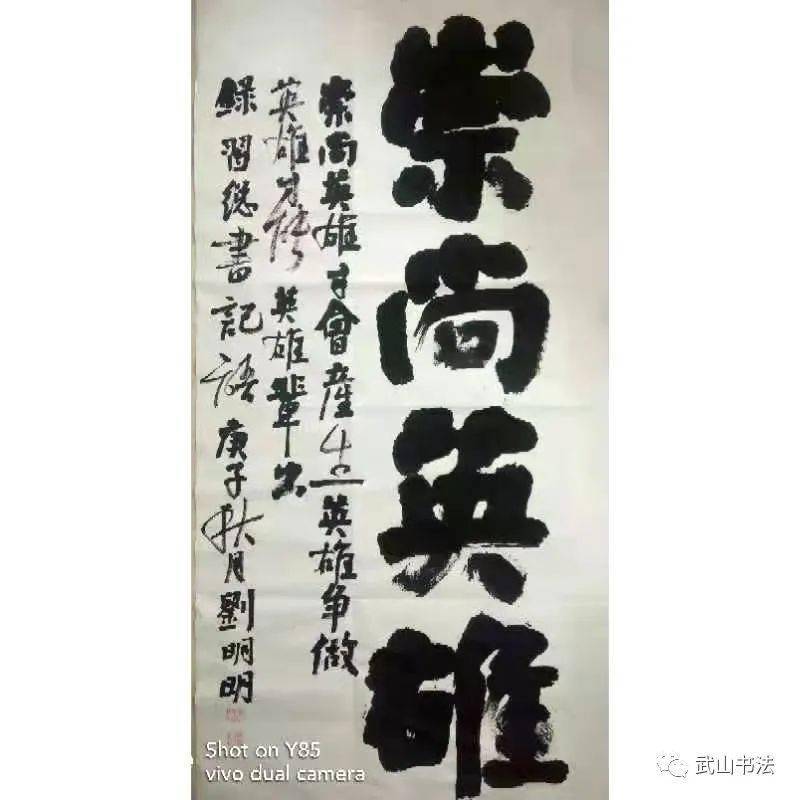 崇尚英雄
崇尚英雄才會產生英雄争做
英雄才能英雄輩出
録習總書記語庚子秋月劉明明
Shot on Y85
vivo dual camera
武山书法